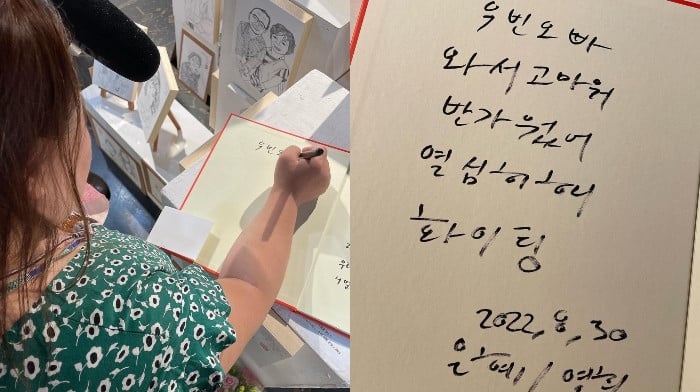 우빈오
우빈오빠
와서고마워
반가웠어
열심히해
화이팅
2022, 8, 30
은혜/영희